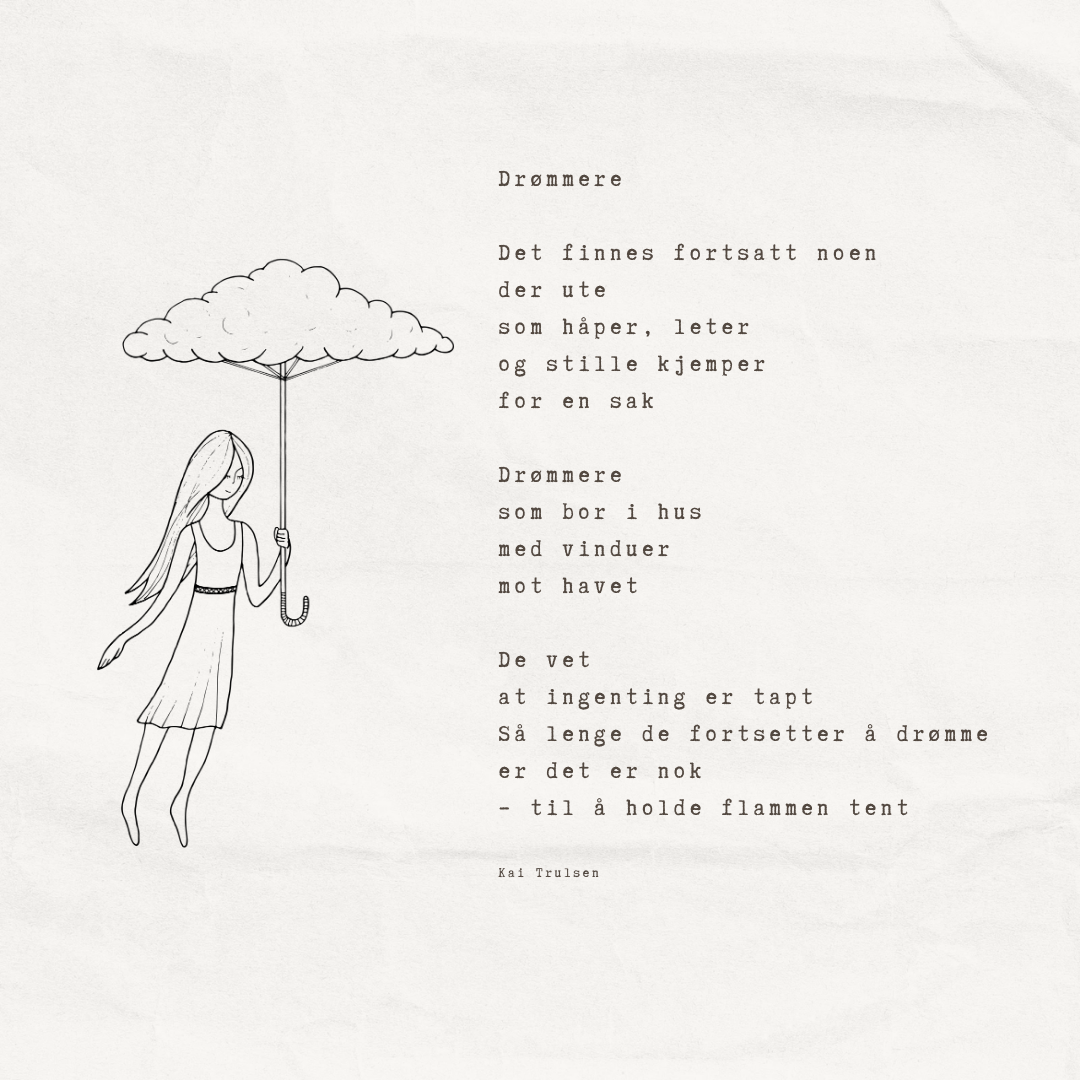 Drømmere
Det finnes fortsatt noen
der ute
som håper, leter
og stille kjemper
for en sak
Drømmere
som bor i hus
med vinduer
mot havet
De vet
at ingenting er tapt
Så lenge de fortsetter å drømme
er det er nok
- til å holde flammen tent
Kai Trulsen